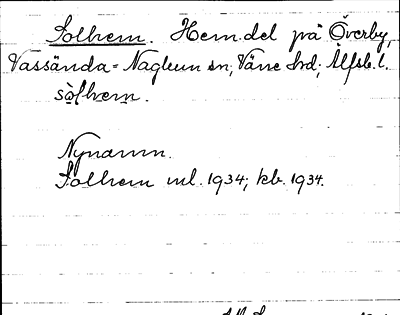 Solhem. Hem.del på Överby,
Vassända-Naglum sn; Väne hd; Älfsb. l.
sòlhem.
Nynamn.
Solhem ml. 1934; kb. 1934.